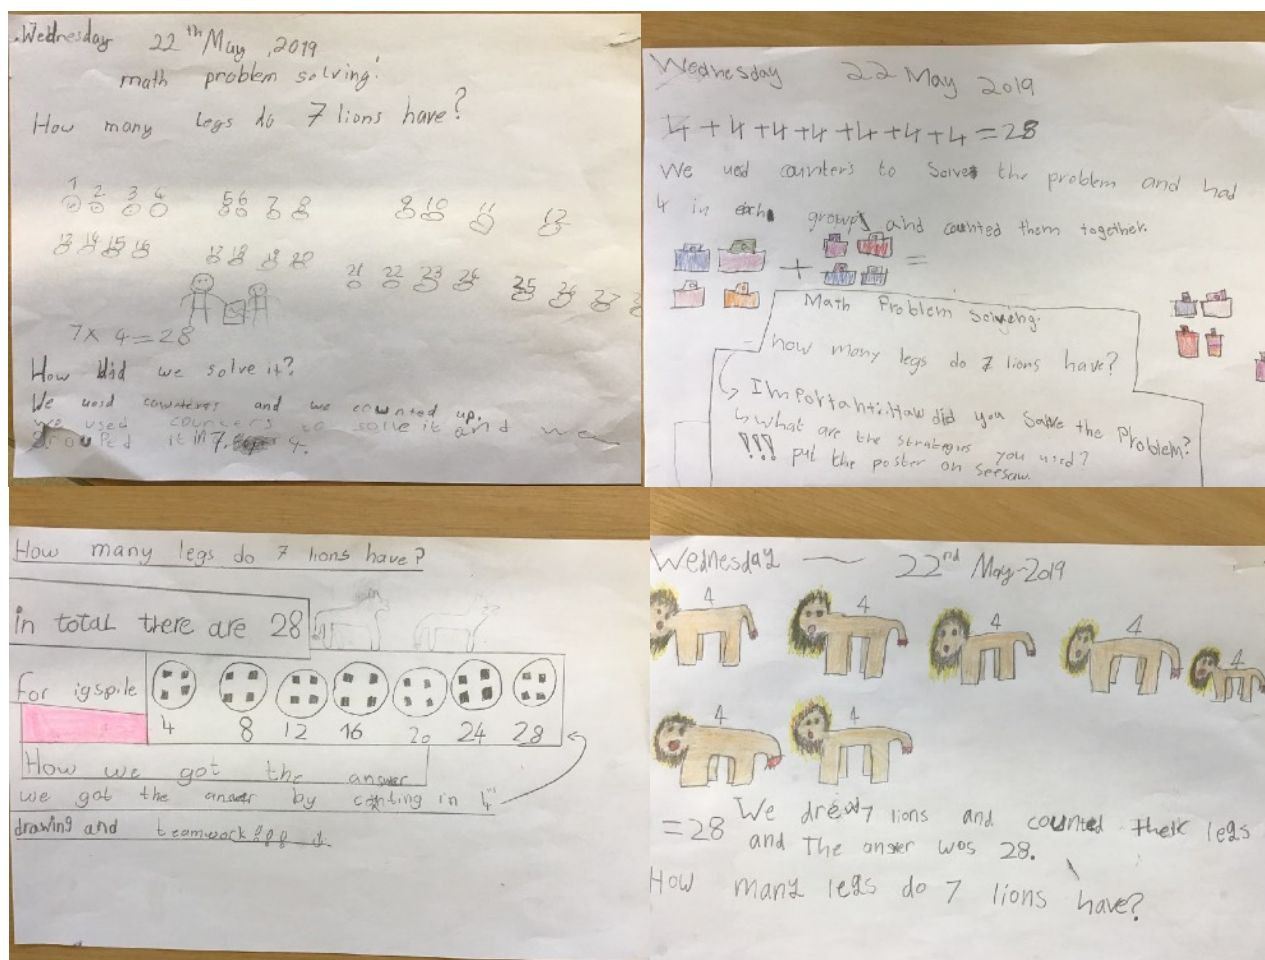 Wednesday 22th May, 2019
math problem solving:
How many legs do 7 lions have?
1 2 3 4 5 6 7 8 9 10 11 12
13 14 15 16 17 18 19 20 21 22 23 24 25 26 27
7x 4=28
How did we solve it?
We used counteres and we counted up.
we used counters to solve it and we
grouped it in 7. 4.
Wednesday 22 May 2019
4+4+4+4+4+4+4=28
We used counters to solve the problem and had
4 in each groups and counted them together.
+ =
Math Problem Solving:
how many legs do 7 lions have?
Important: How did you solve the Problem?
what are the strategies you used?
!!! put the poster on seesaw.
How many legs do 7 lions have?
in total there are 28
for igspile
4 8 12 16 20 24 28
How we got the answer
we got the answer by conting in 4
drawing and teamwork
Wednesday — 22nd May-2019
4 4 4 4 4
4 4
=28 We drew 7 lions and counted their legs
and The answer was 28.
How many legs do 7 lions have?